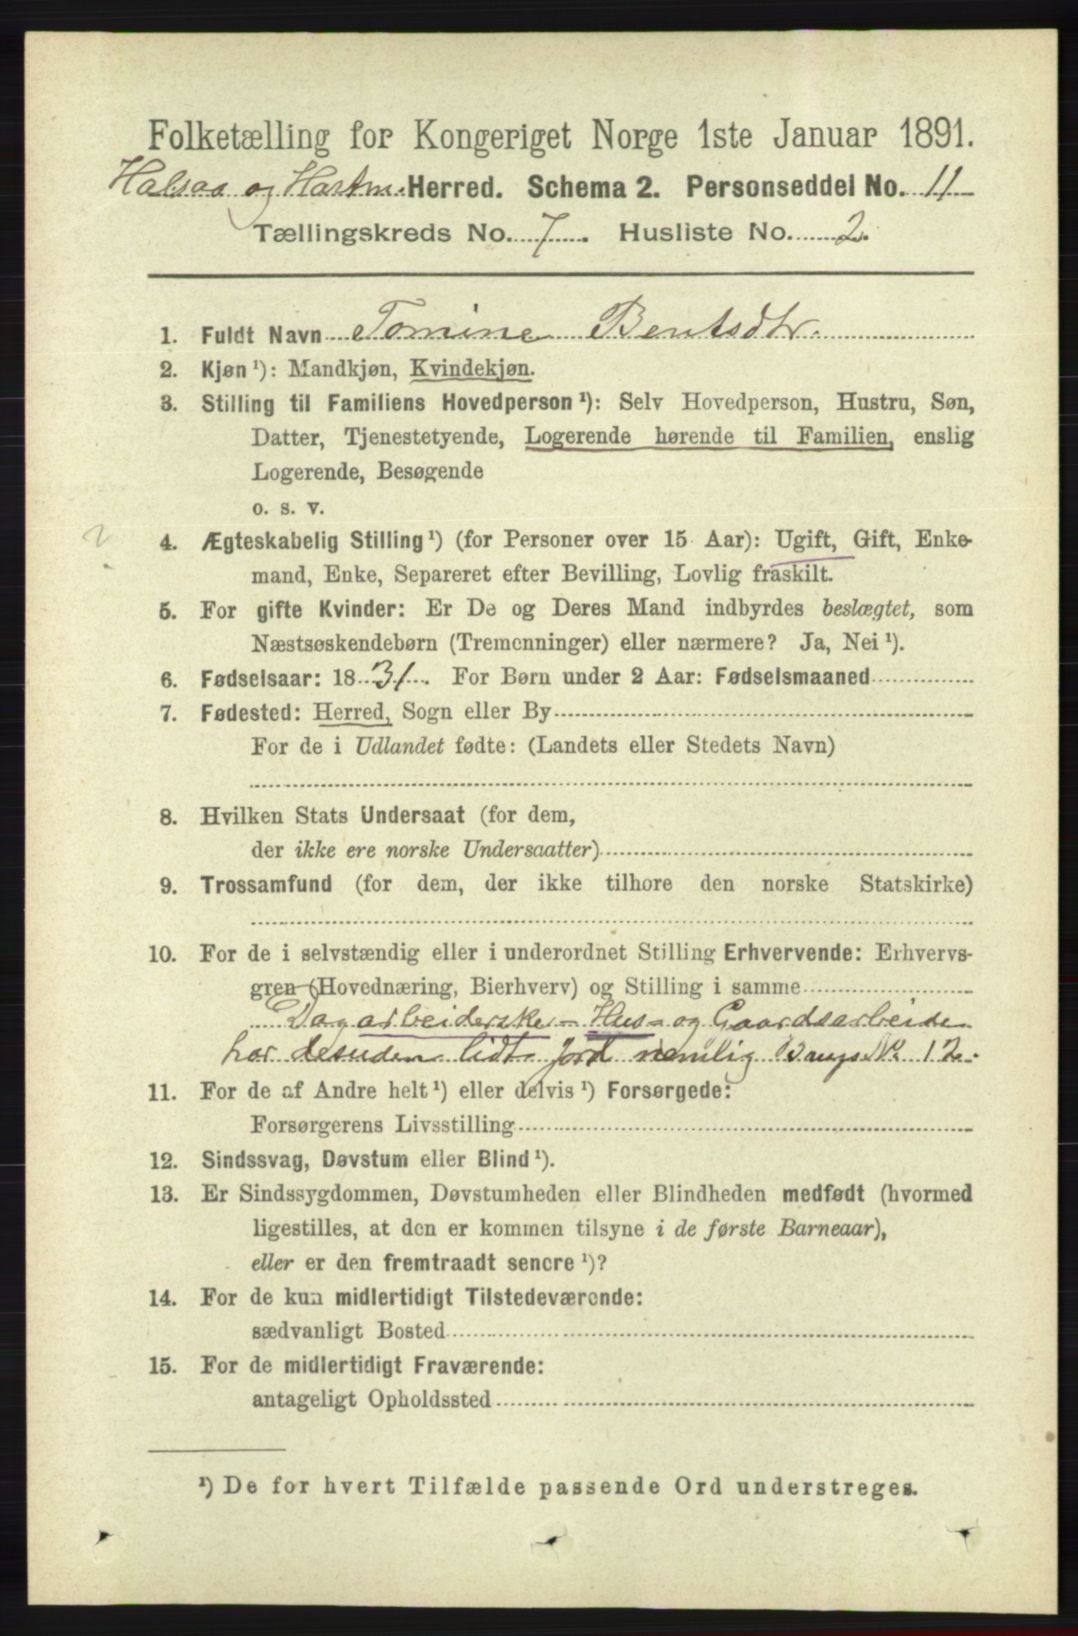 Folketælling for Kongeriget Norge 1ste Januar 1891.
Halsaa og Hartm. Herred. Schema 2. Personseddel No. 11
Tællingskreds No. 7. Husliste No. 2.
1. Fuldt Navn Tomine Bentsdtr.
2. Kjøn ¹): Mandkjøn, Kvindekjøn.
3. Stilling til Familiens Hovedperson ¹): Selv Hovedperson, Hustru, Søn,
Datter, Tjenestetyende, Logerende hørende til Familien, enslig
Logerende, Besøgende
o. s. v.
2 4. Ægteskabelig Stilling ¹) (for Personer over 15 Aar): Ugift, Gift, Enke-
mand, Enke, Separeret efter Bevilling, Lovlig fraskilt.
5. For gifte Kvinder: Er De og Deres Mand indbyrdes beslægtet, som
Næstsøskendebørn (Tremenninger) eller nærmere? Ja, Nei ¹).
6. Fødselsaar: 1831. For Børn under 2 Aar: Fødselsmaaned
7. Fødested: Herred, Sogn eller By
For de i Udlandet fødte: (Landets eller Stedets Navn)
8. Hvilken Stats Undersaat (for dem,
der ikke ere norske Undersaatter)
9. Trossamfund (for dem, der ikke tilhøre den norske Statskirke)
10. For de i selvstændig eller i underordnet Stilling Erhvervende: Erhvervs-
gren (Hovednæring, Bierhverv) og Stilling i samme
Dagarbeiderske - Hus- og Gaardsarbeide
har desuden lidt Jord nemlig Brugs No 12.
11. For de af Andre helt ¹) eller delvis ¹) Forsørgede:
Forsørgerens Livsstilling
12. Sindssvag, Døvstum eller Blind ¹).
13. Er Sindssygdommen, Døvstumheden eller Blindheden medfødt (hvormed
ligestilles, at den er kommen tilsyne i de første Barneaar),
eller er den fremtraadt senere ¹)?
14. For de kun midlertidigt Tilstedeværende:
sædvanligt Bosted
15. For de midlertidigt Fraværende:
antageligt Opholdssted
¹) De for hvert Tilfælde passende Ord understreges.